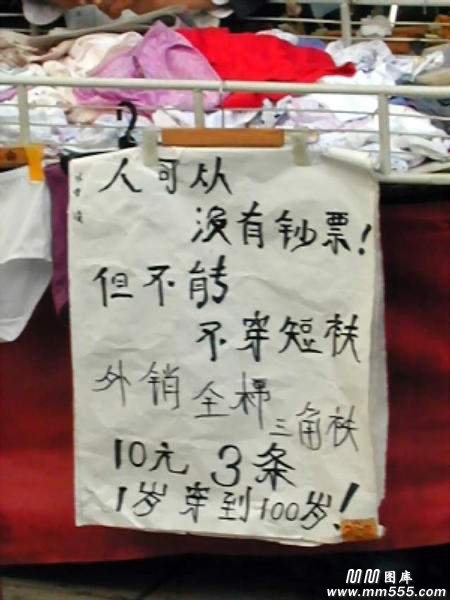 人可从
没有钞票！
但不能
不穿短衭
外销全棉
三角衭
10元 3条
1岁穿到100岁！
MM图库
www.mm555.com